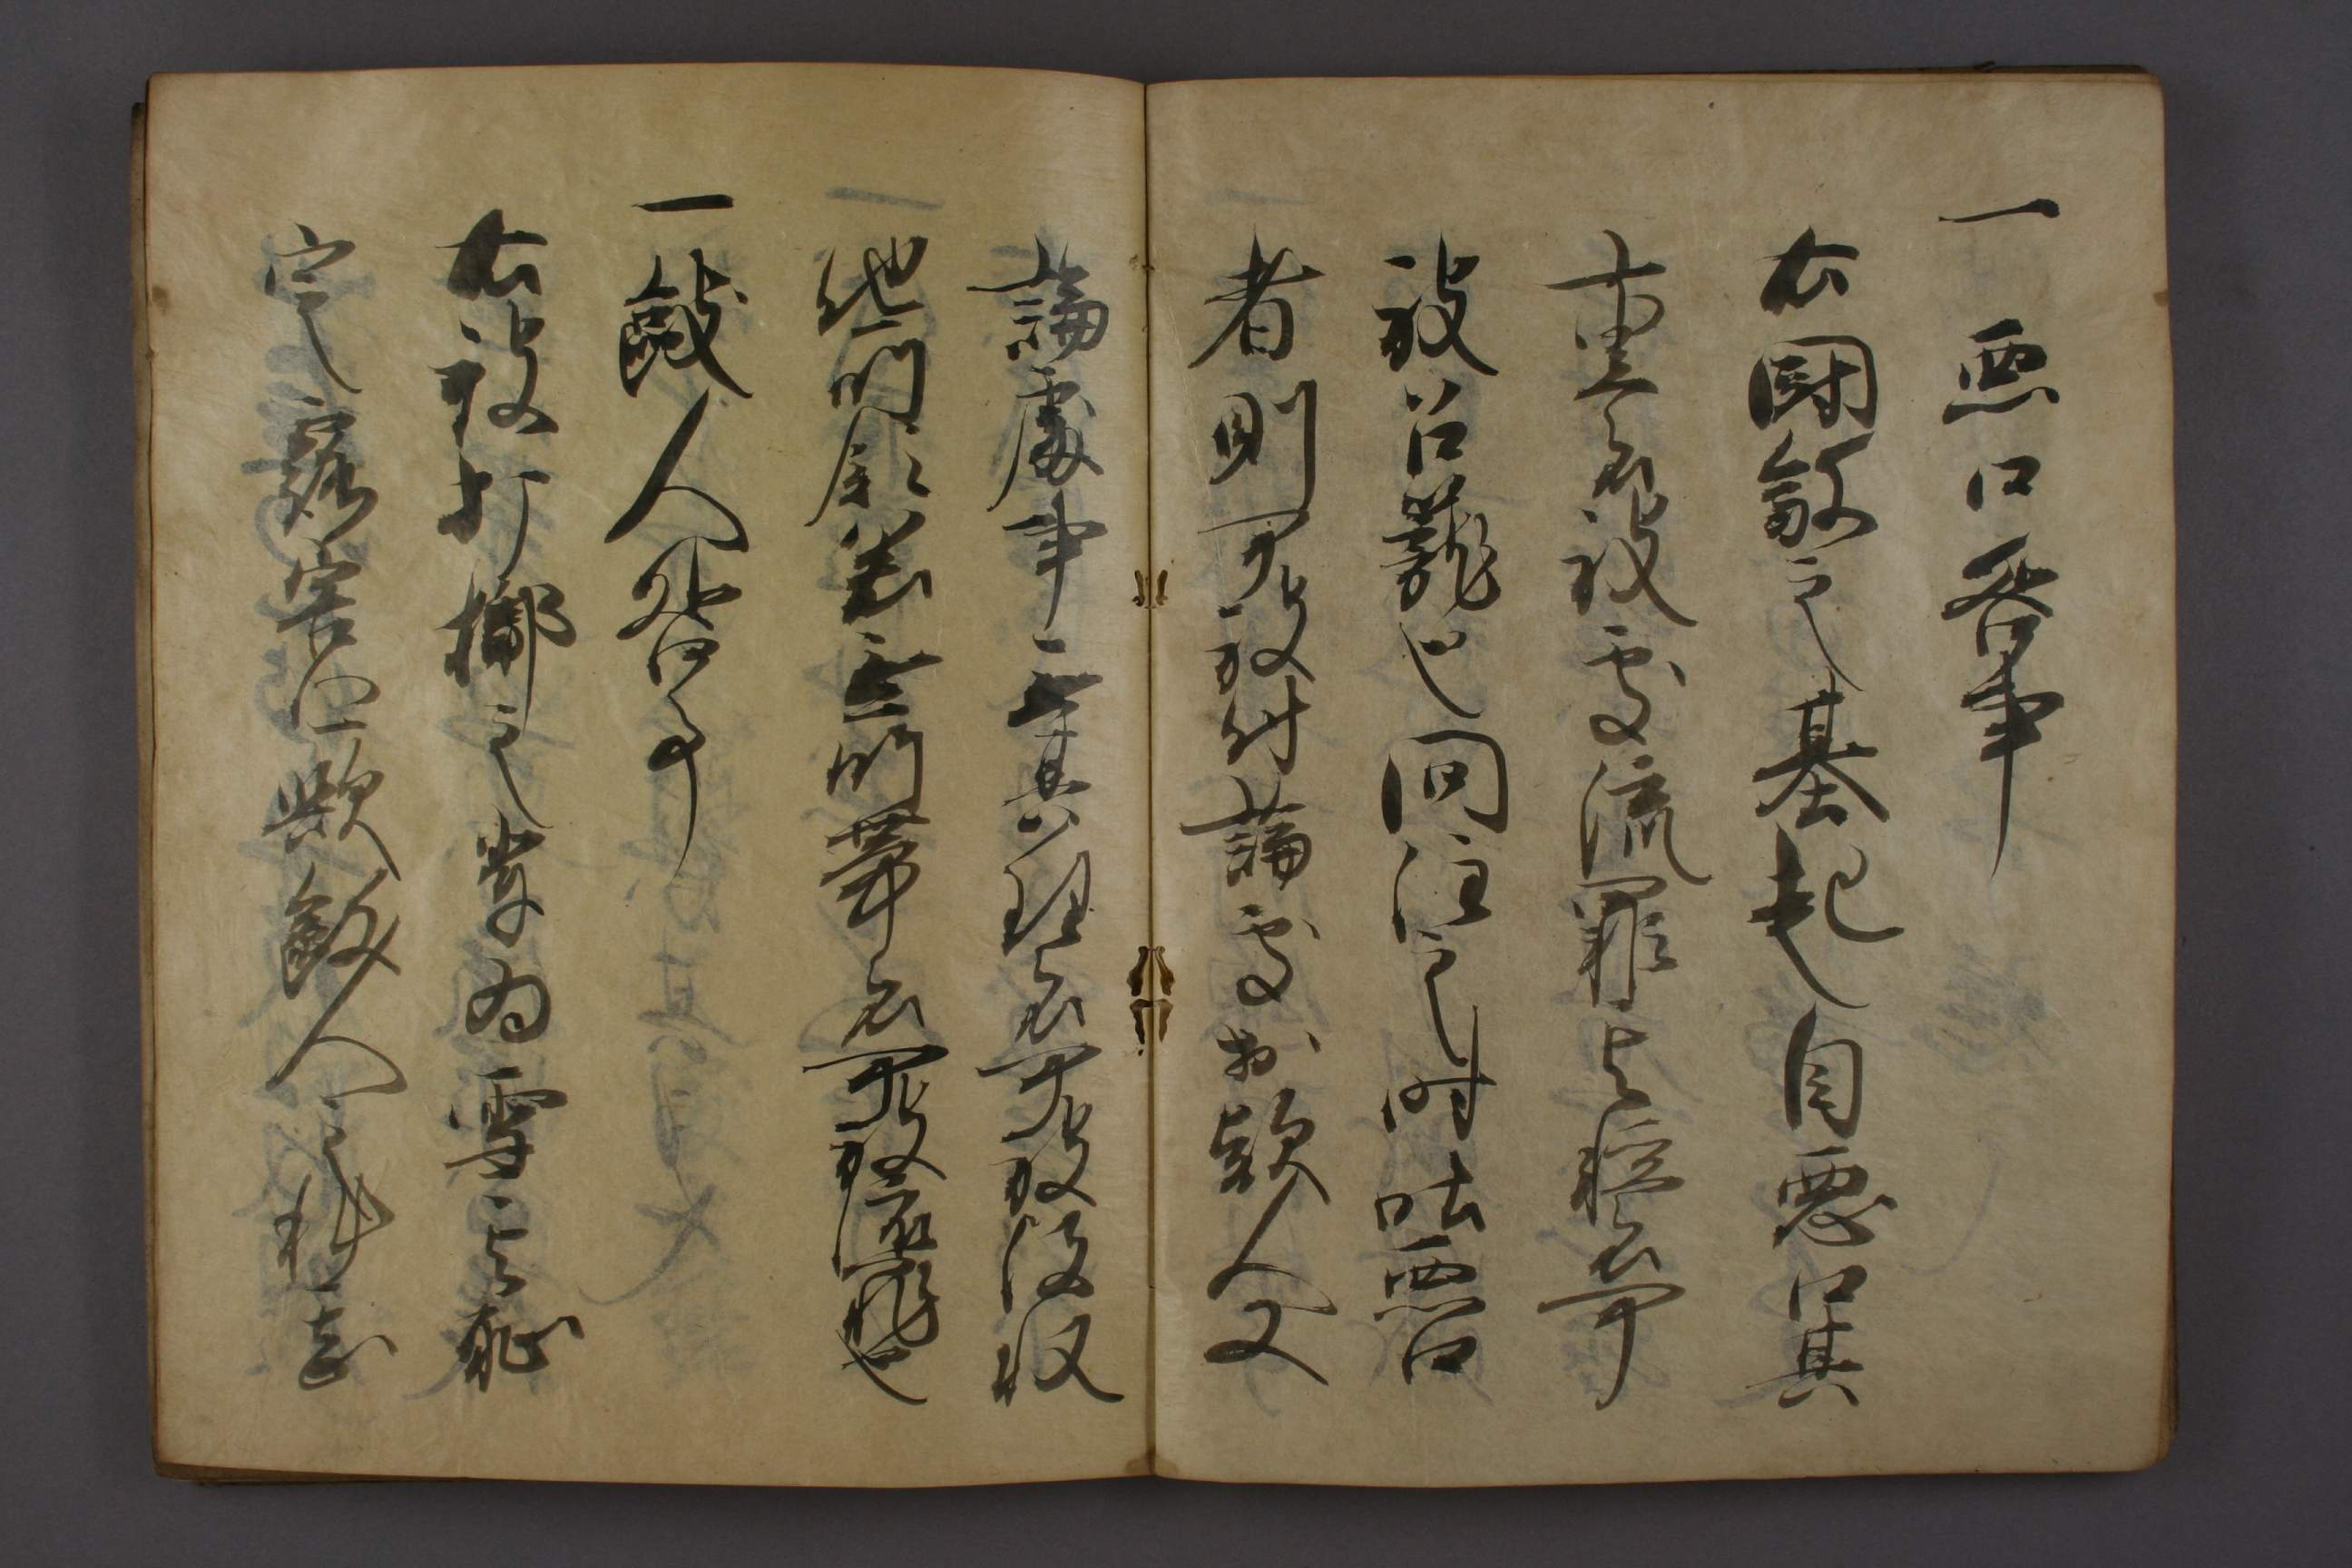 一 悪口咎事
右闘殺之基起自悪口其
重者被処流罪其軽者可
被召籠也問注之時吐悪口
者則可被付論処於敵人又
論處事無其理者可被没収
他所領若無所帯者可被処流罪也
一 殴人咎事
右被打擲之輩為雪其恥
定露害心歟殴人之科甚